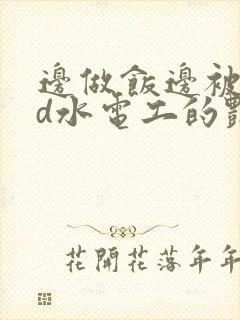 邊做飯邊被
d水電工的
花開花落年年